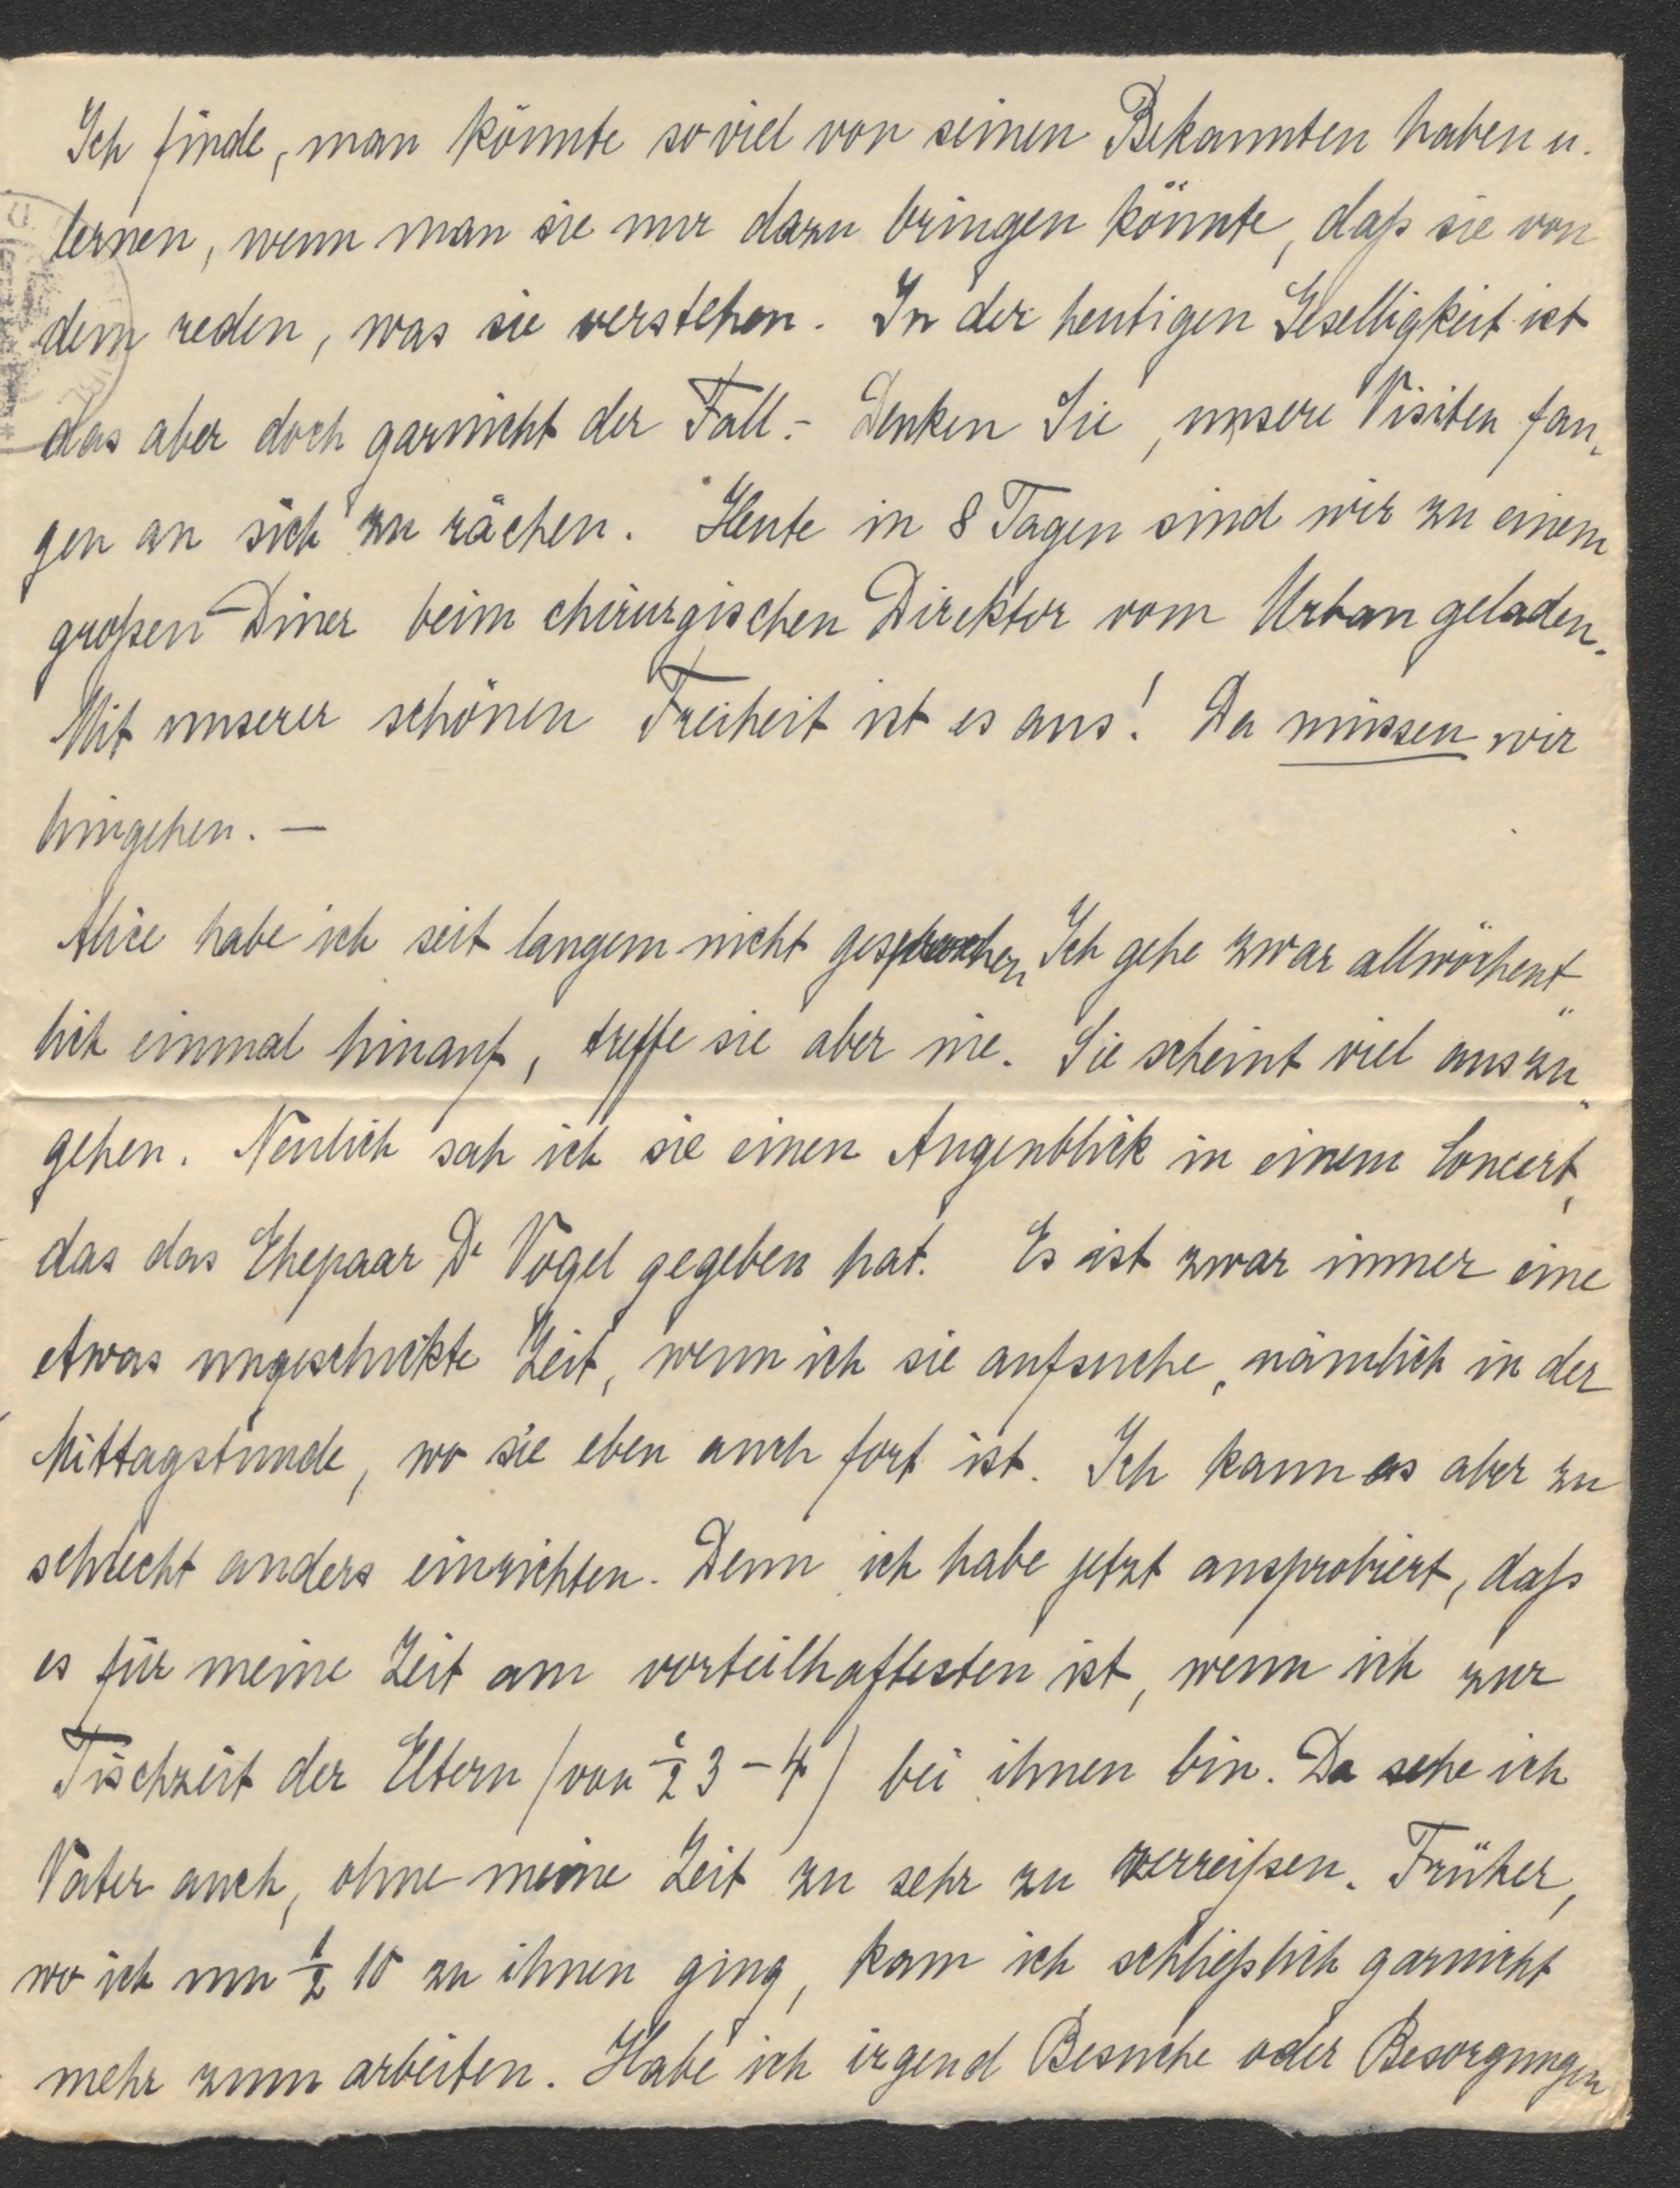 Ich finde, man könnte soviel von seinen Bekannten haben u.
lernen, wenn man sie nur dazu bringen könnte, daß sie von
dem reden, was sie verstehen. In der heutigen Geselligkeit ist
das aber doch garnicht der Fall.- Denken Sie, unsere Visiten fan-
gen an sich zu rächen. Heute in 8 Tagen sind wir zu einem
großen Diner beim chirurgischen Direktor vom Urban geladen.
Mit unserer schönen Freiheit ist es aus! Da müssen wir
hingehen. —
Alice habe ich seit langem nicht gesprochen. Ich gehe zwar allwöchent-
lich einmal hinauf, treffe sie aber nie. Sie scheint viel auszu-
gehen. Neulich sah ich sie einen Augenblick in einem Concert,
das das Ehepaar Dr Vogel gegeben hat. Es ist zwar immer eine
etwas ungeschickte Zeit, wenn ich sie aufsuche, nämlich in der
Mittagstunde, wo sie eben auch fort ist. Ich kann es aber zu
schlecht anders einrichten. Denn ich habe jetzt ausprobiert, daß
es für meine Zeit am vorteilhaftesten ist, wenn ich zur
Tischzeit der Eltern (von ½ 3 – 4) bei ihnen bin. Da sehe ich
Vater auch, ohne meine Zeit zu sehr zu zerreißen. Früher,
wo ich um ½ 10 zu ihnen ging, kam ich schließlich garnicht
mehr zum arbeiten. Habe ich irgend Besuche oder Besorgungen